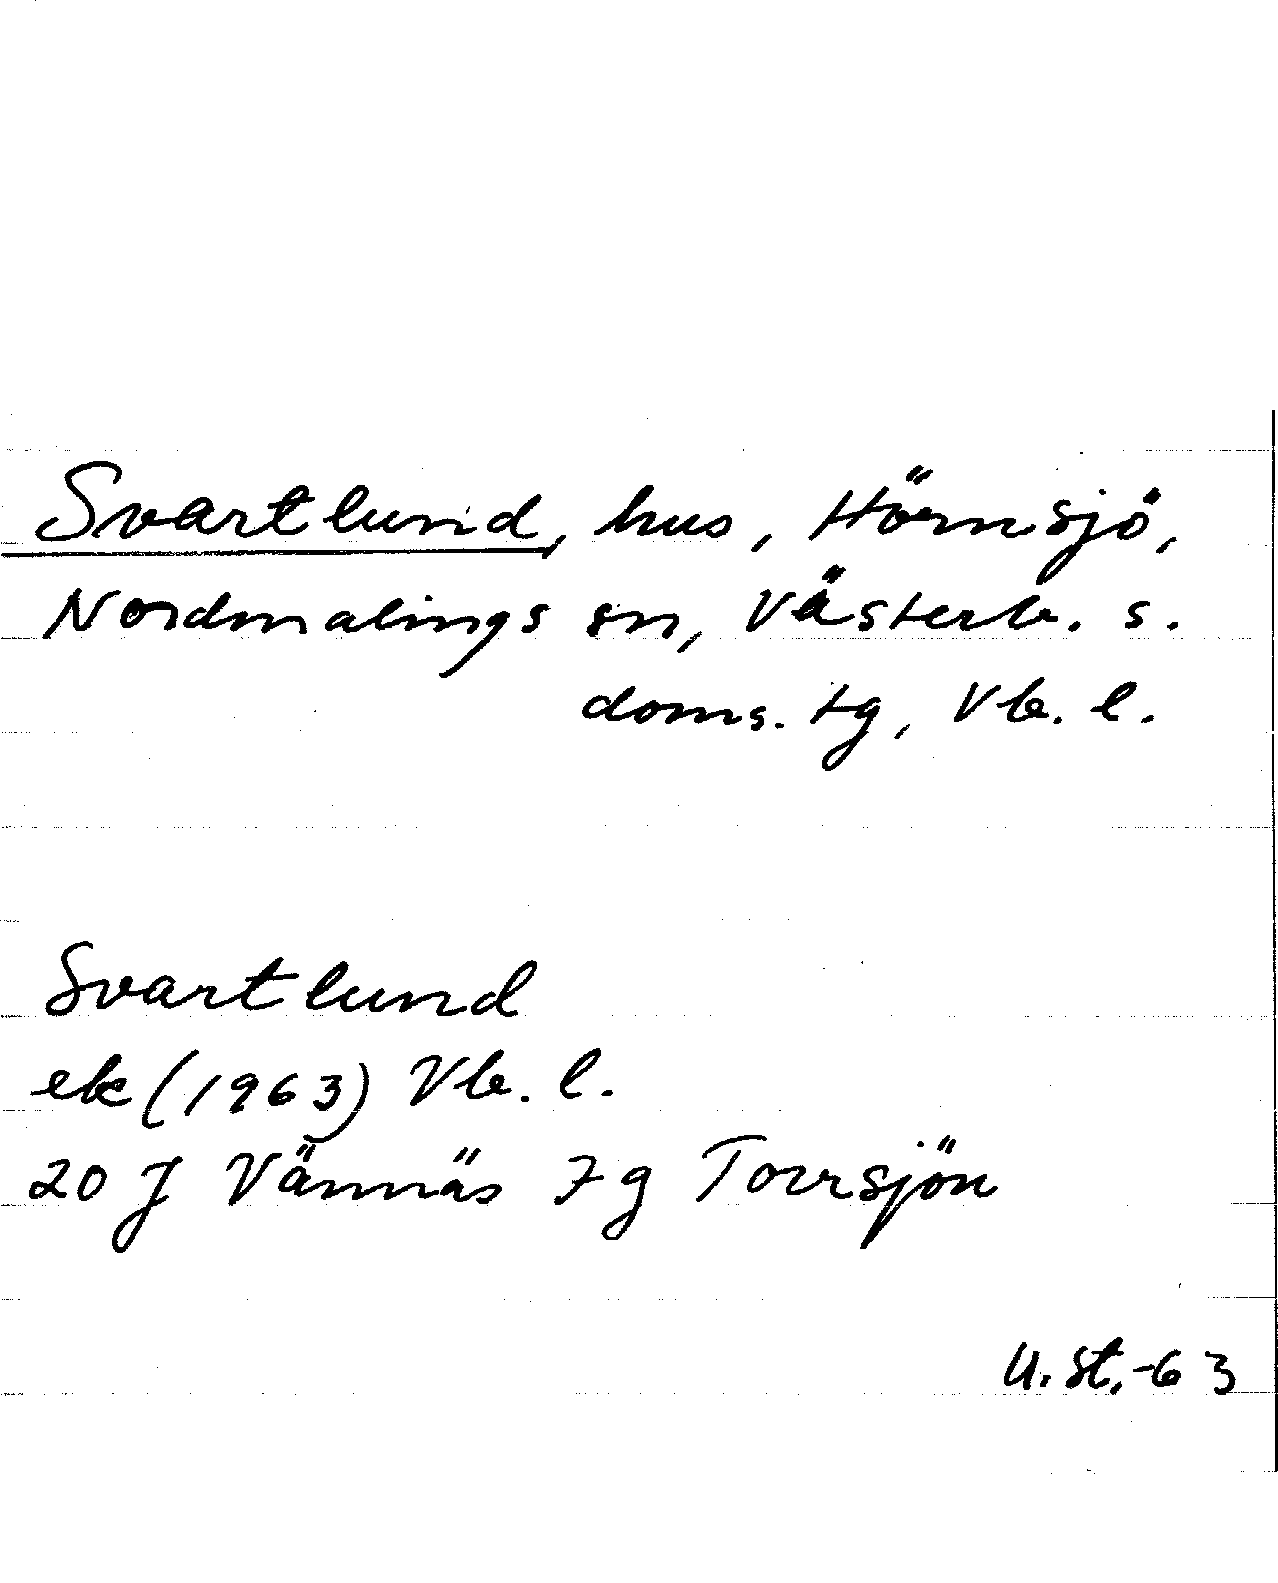 Svartlund, hus, Hörnsjö,
Nordmalings sn, Västerb. s.
doms. tg, Vb. l.
Svartlund
ek (1963) Vb. l.
20 J Vännäs 7 g Torrsjön
U. St. -63